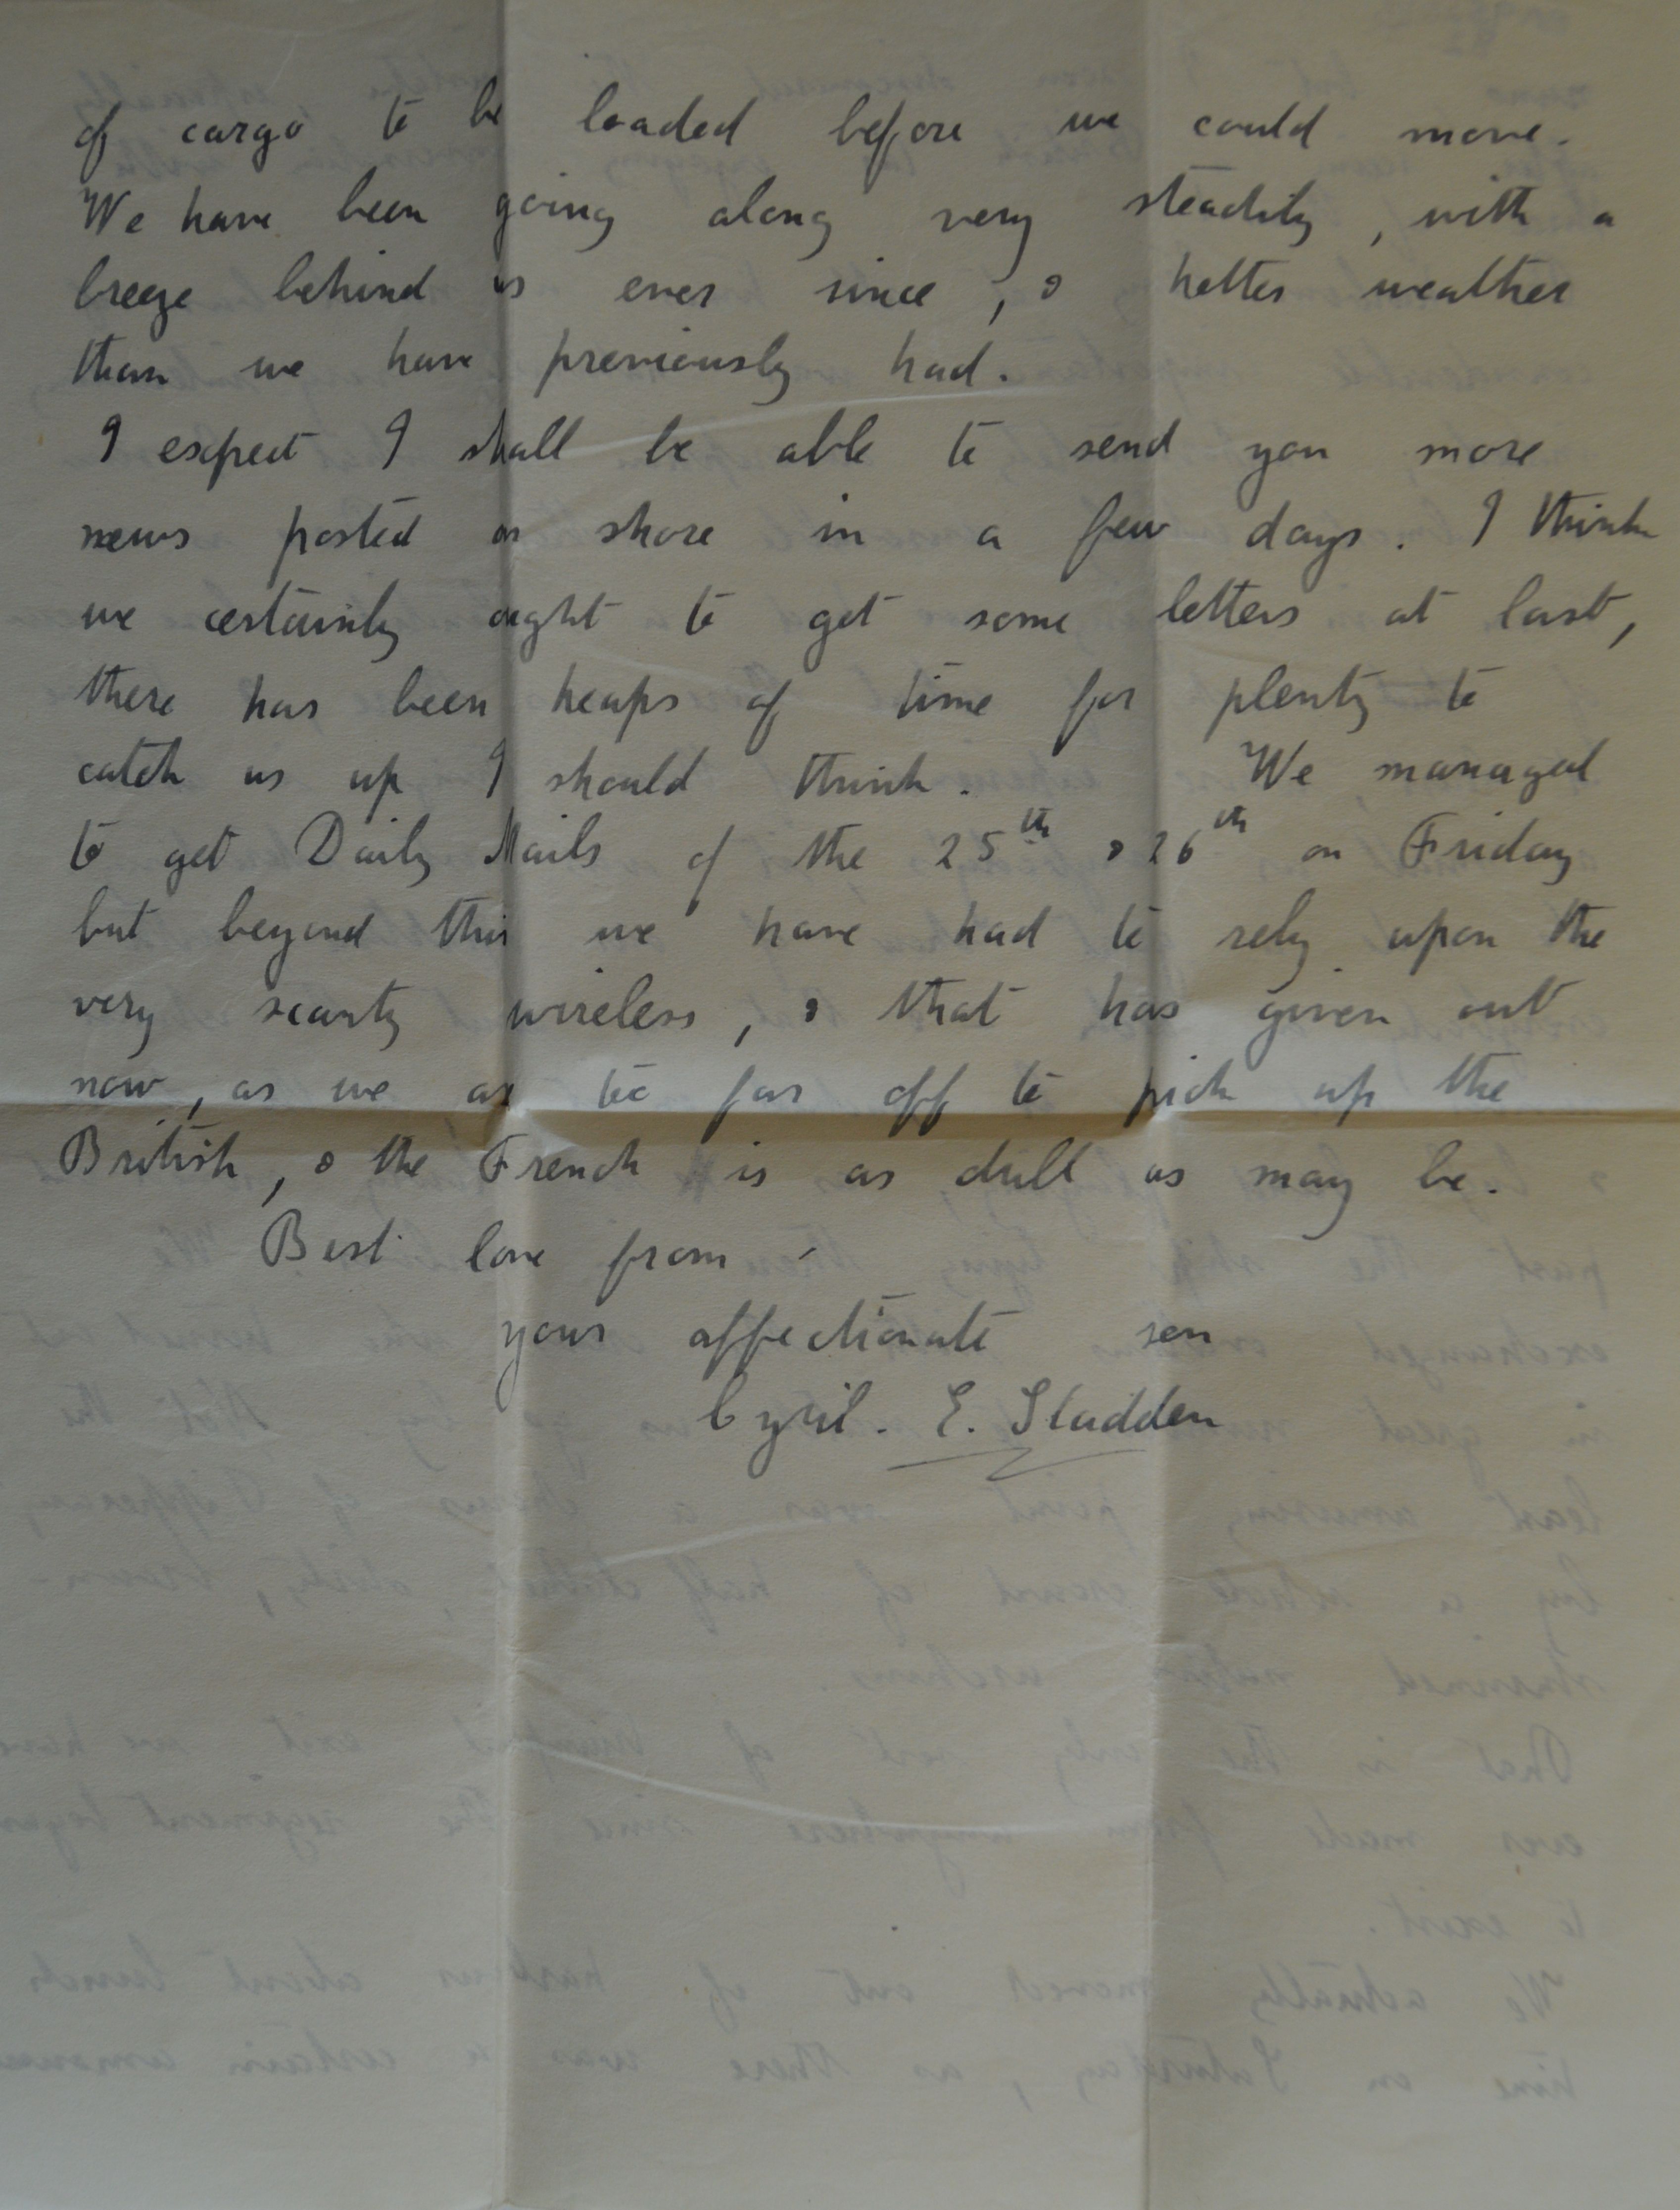 of cargo to be loaded before we could move.
We have been going along very steadily, with a
breeze behind us ever since, & hotter weather
than we have previously had.
I expect I shall be able to send you more
news posted on shore in a few days. I think
we certainly ought to get some letters at last,
there has been heaps of time for plenty to
catch us up I should think. We managed
to get Daily Mails of the 25th & 26th on Friday
but beyond this we have had to rely upon the
very scanty wireless, & that has given out
now, as we are too far off to pick up the
British, & the French is as dull as may be.
Best love from
your affectionate son
Cyril. E. Sladden